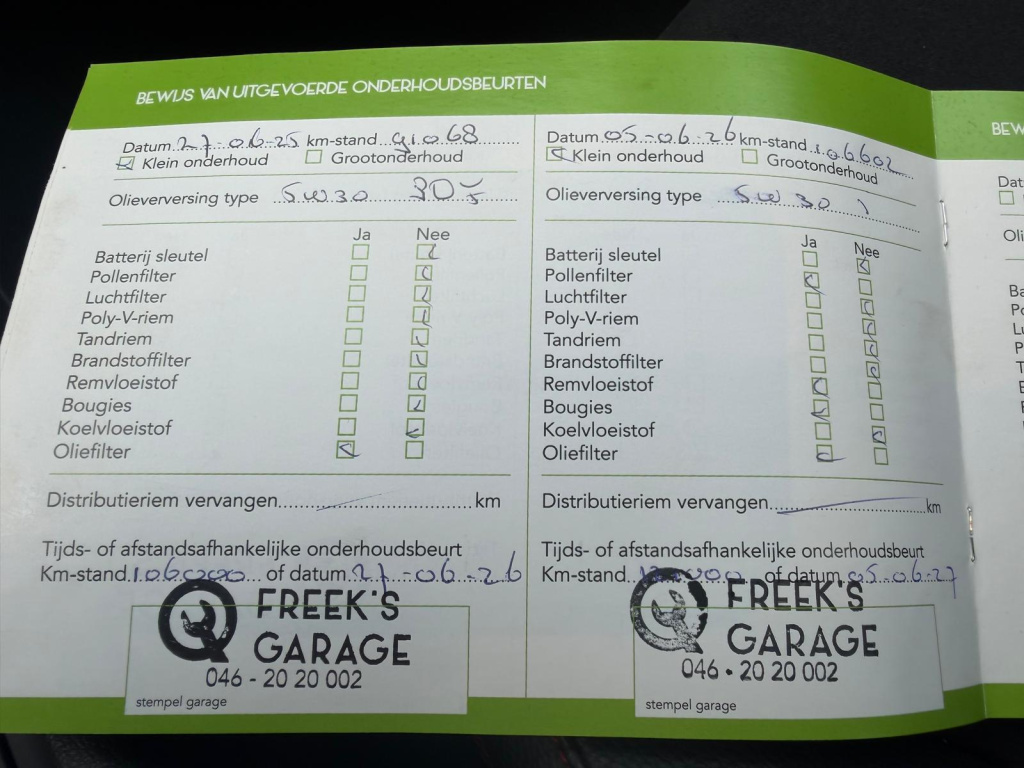 BEWIJS VAN UITGEVOERDE ONDERHOUDSBEURTEN
Datum 27-06-25 km-stand 91068
Klein onderhoud Grootonderhoud
Olieverversing type 5W30
Ja Nee
Batterij sleutel
Pollenfilter
Luchtfilter
Poly-V-riem
Tandriem
Brandstoffilter
Remvloeistof
Bougies
Koelvloeistof
Oliefilter
Distributieriem vervangen km
Tijds- of afstandsafhankelijke onderhoudsbeurt
Km-stand 106000 of datum 27-06-26
FREEK'S
GARAGE
046 - 20 20 002
stempel garage
Datum 05-06-26 km-stand 106602
Klein onderhoud Grootonderhoud
Olieverversing type 5W30
Ja Nee
Batterij sleutel
Pollenfilter
Luchtfilter
Poly-V-riem
Tandriem
Brandstoffilter
Remvloeistof
Bougies
Koelvloeistof
Oliefilter
Distributieriem vervangen km
Tijds- of afstandsafhankelijke onderhoudsbeurt
Km-stand of datum 05-06-27
FREEK'S
GARAGE
046 - 20 20 002
stempel garage